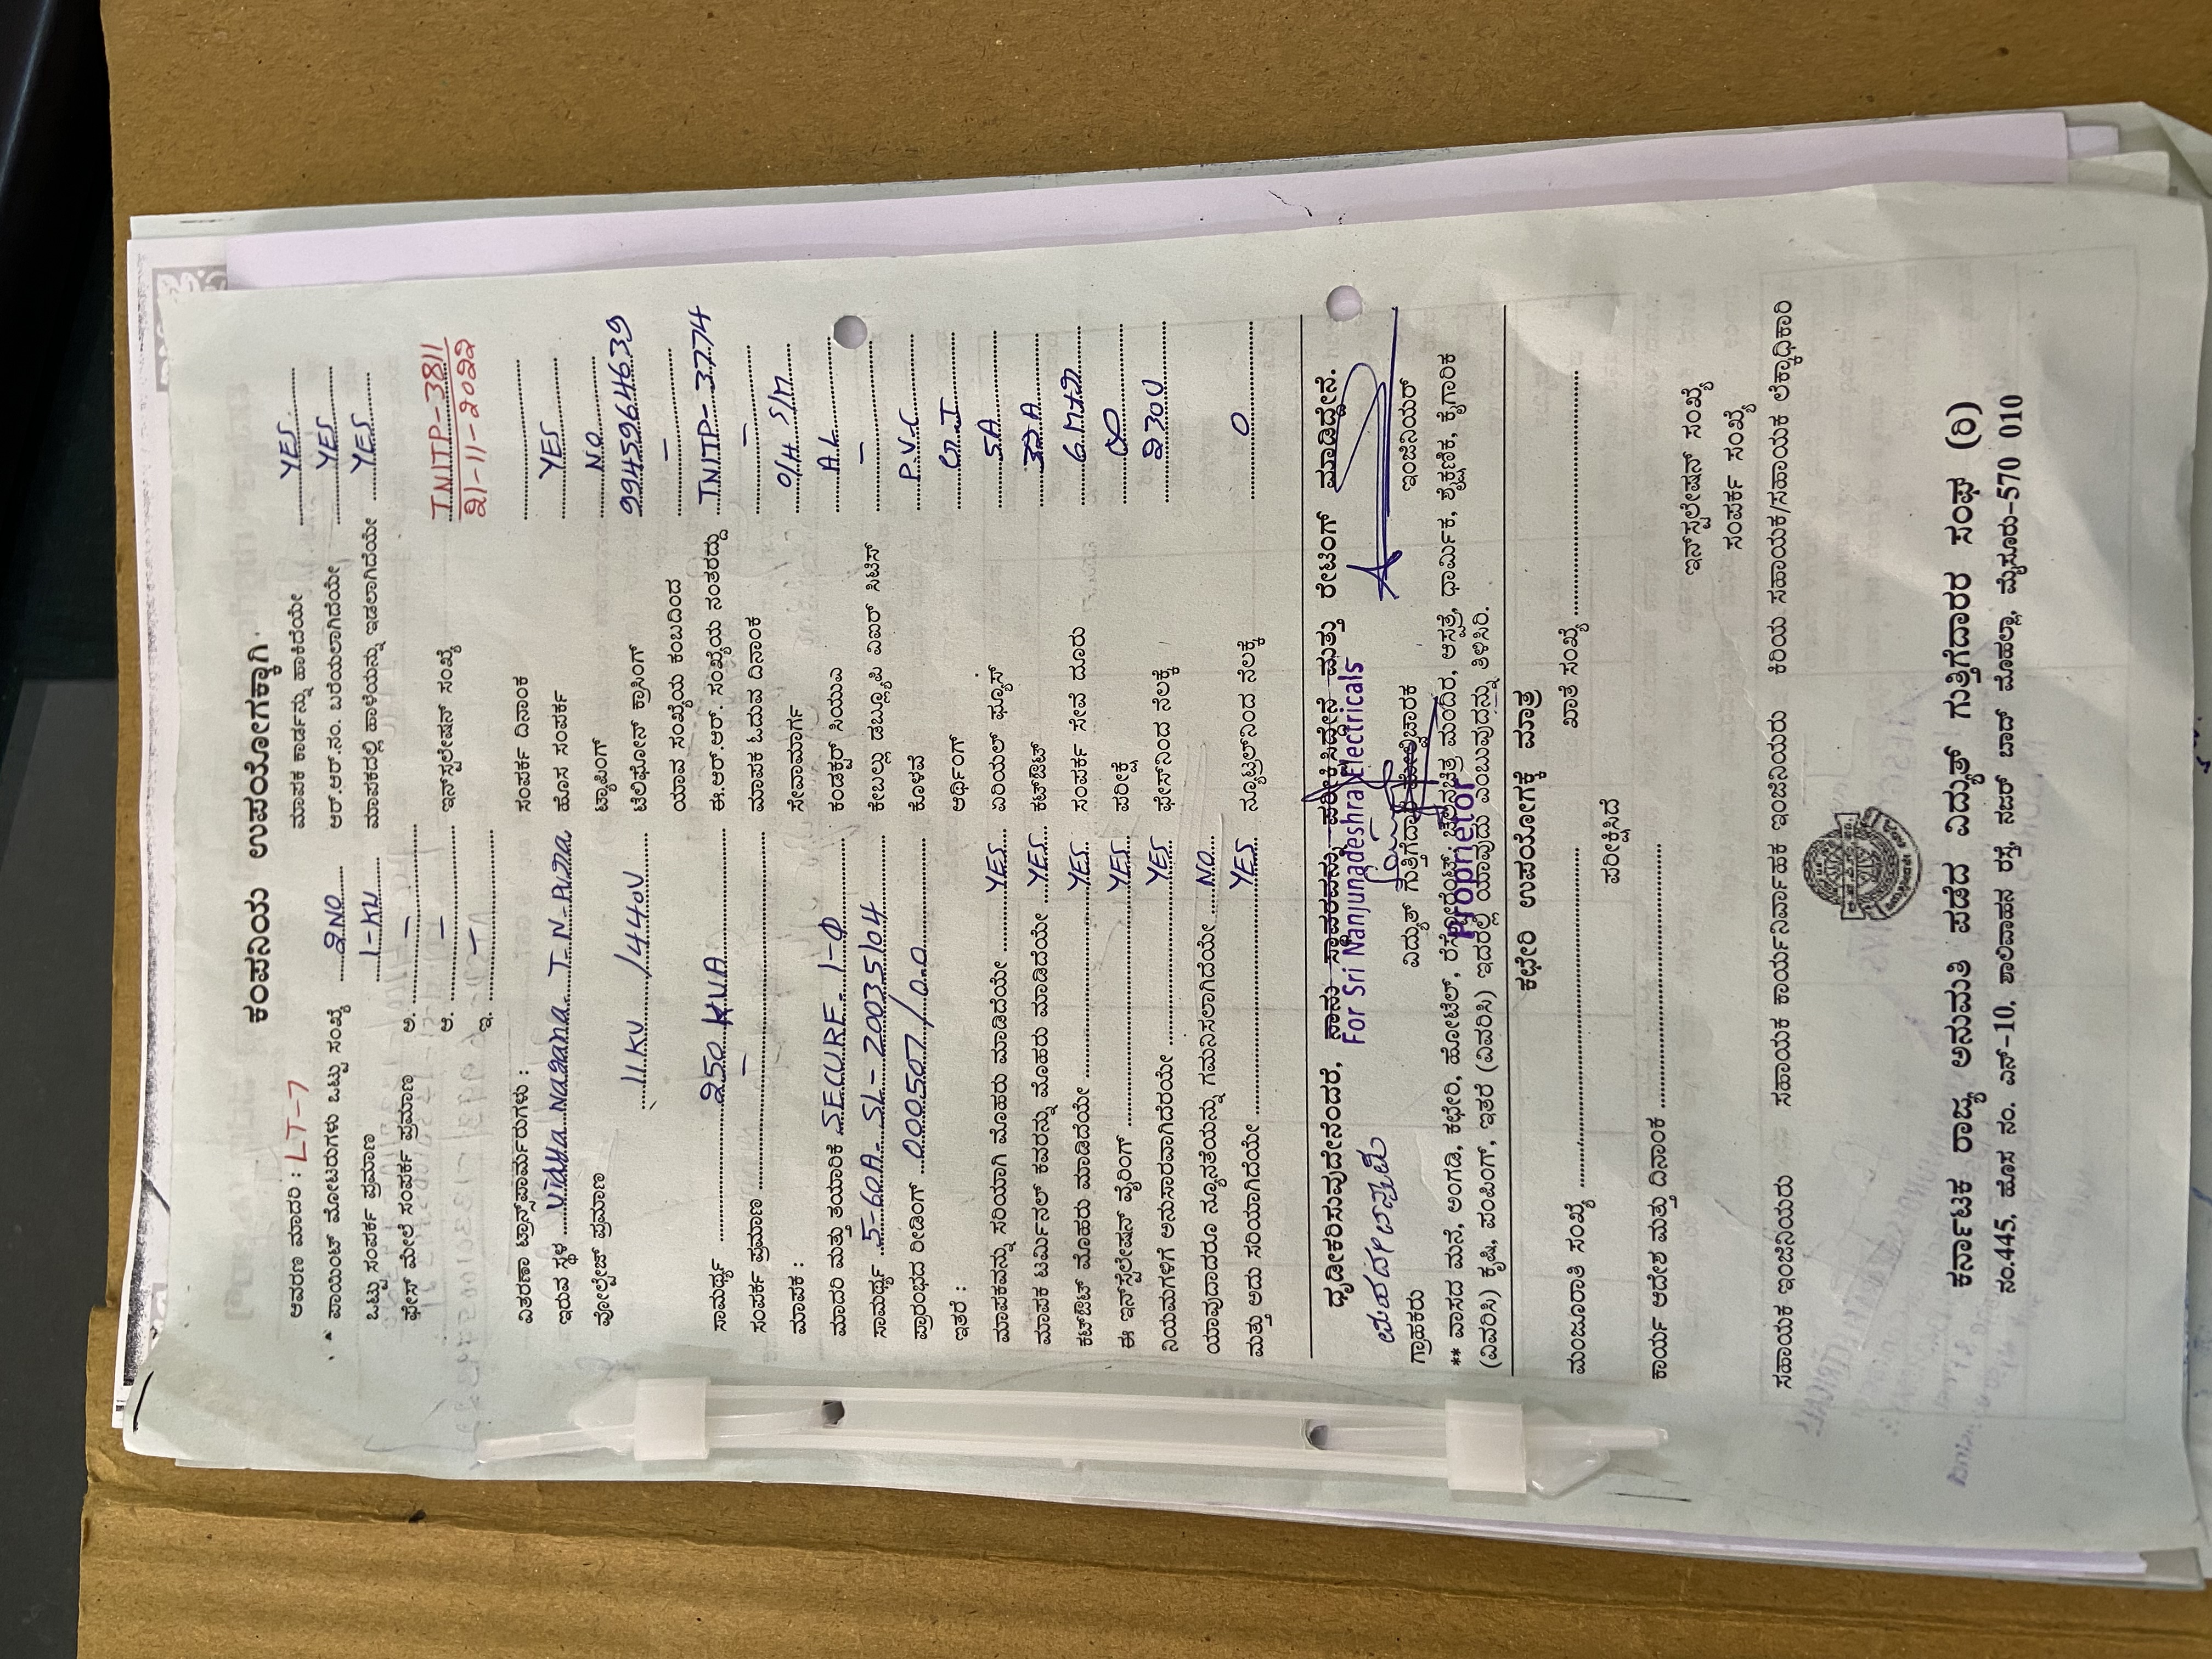 ಕಂಪನಿಯ ಉಪಯೋಗಕ್ಕಾಗಿ
ಆವರಣ ಮಾದರಿ : LT-7 ಮಾಪಕ ಕಾರ್ಡನ್ನು ಹಾಕಿದೆಯೇ YES
ಪಾಯಿಂಟ್ ಮೋಟರುಗಳು ಒಟ್ಟು ಸಂಖ್ಯೆ 2NO ಆರ್.ಆರ್.ನಂ. ಬರೆಯಲಾಗಿದೆಯೇ YES
ಒಟ್ಟು ಸಂಪರ್ಕ ಪ್ರಮಾಣ 1-KW ಮಾಪಕದಲ್ಲಿ ಹಾಳೆಯನ್ನು ಇಡಲಾಗಿದೆಯೇ YES
ಫೇಸ್ ಮೇಲೆ ಸಂಪರ್ಕ ಪ್ರಮಾಣ ಅ. –
ಆ. – ಇನ್‌ಸ್ಟಲೇಷನ್ ಸಂಖ್ಯೆ TNITP-3811
ಇ. – 21-11-2022
ವಿತರಣಾ ಟ್ರಾನ್ಸ್‌ಫಾರ್ಮರುಗಳು : ಸಂಪರ್ಕ ದಿನಾಂಕ
ಇರುವ ಸ್ಥಳ Vidya Nagara T-N-Pura ಹೊಸ ಸಂಪರ್ಕ YES
ವೋಲ್ಟೇಜ್ ಪ್ರಮಾಣ ಟ್ಯಾಪಿಂಗ್ NO
11KV / 440V ಟೆಲಿಫೋನ್ ಕ್ರಾಸಿಂಗ್ 9945964639
ಯಾವ ಸಂಖ್ಯೆಯ ಕಂಬದಿಂದ –
ಸಾಮರ್ಥ್ಯ 250 KVA ಈ.ಆರ್.ಆರ್. ಸಂಖ್ಯೆಯ ನಂತರದ್ದು TNITP-3774
ಸಂಪರ್ಕ ಪ್ರಮಾಣ – ಮಾಪಕ ಓದುವ ದಿನಾಂಕ –
ಮಾಪಕ : ಸೇವಾಮಾರ್ಗ O/H S/M
ಮಾದರಿ ಮತ್ತು ತಯಾರಿಕೆ SECURE 1-Φ ಕಂಡಕ್ಟರ್ ಸಿಯುಎ A.L
ಸಾಮರ್ಥ್ಯ 5-60A SL-20035104 ಕೇಬಲ್ಲು ಡಬ್ಲ್ಯೂಪಿ ವಿಐಆರ್ ಸಿಟಿಸ್ –
ಪ್ರಾರಂಭದ ರೀಡಿಂಗ್ 000507/0.0 ಕೊಳವೆ P.V.C
ಇತರೆ : ಅರ್ಥಿಂಗ್ G.I
ಮಾಪಕವನ್ನು ಸರಿಯಾಗಿ ಮೊಹರು ಮಾಡಿದೆಯೇ YES ಏರಿಯಲ್ ಫ್ಯೂಸ್ 5A
ಮಾಪಕ ಟರ್ಮಿನಲ್ ಕವರನ್ನು ಮೊಹರು ಮಾಡಿದೆಯೇ YES ಕಟ್‌ಔಟ್ 32A
ಕಟ್‌ಔಟ್ ಮೊಹರು ಮಾಡಿದೆಯೇ YES ಸಂಪರ್ಕ ಸೇವೆ ದೂರು 6 MT
ಈ ಇನ್‌ಸ್ಟಲೇಷನ್ ವೈರಿಂಗ್ YES ಪರೀಕ್ಷೆ ∞
ನಿಯಮಗಳಿಗೆ ಅನುಸಾರವಾಗಿದೆರಯೇ YES ಫೇಸ್‌ನಿಂದ ನೆಲಕ್ಕೆ 230V
ಯಾವುದಾದರೂ ನ್ಯೂನತೆಯನ್ನು ಗಮನಿಸಲಾಗಿದೆಯೇ NO
ಮತ್ತು ಅದು ಸರಿಯಾಗಿದೆಯೇ YES ನ್ಯೂಟ್ರಲ್‌ನಿಂದ ನೆಲಕ್ಕೆ 0
ಧೃಡೀಕರಿಸುವುದೇನೆಂದರೆ, ನಾನು ಸ್ಥಾವರವನ್ನು ಪರೀಕ್ಷಿಸಿದ್ದೇನೆ ಮತ್ತು ರೇಟಿಂಗ್ ಮಾಡಿದ್ದೇನೆ.
For Sri Nanjundeshra Electricals
ಗ್ರಾಹಕರು ವಿದ್ಯುತ್ ಗುತ್ತಿಗೆದಾರ ಮೇಲ್ವಿಚಾರಕ ಇಂಜಿನಿಯರ್
Proprietor
** ವಾಸದ ಮನೆ, ಅಂಗಡಿ, ಕಛೇರಿ, ಹೋಟೆಲ್, ರೆಸ್ಟೋರೆಂಟ್, ಚಲನಚಿತ್ರ ಮಂದಿರ, ಆಸ್ಪತ್ರೆ, ಧಾರ್ಮಿಕ, ಶೈಕ್ಷಣಿಕ, ಕೈಗಾರಿಕ
(ವಿವರಿಸಿ) ಕೃಷಿ, ಪಂಪಿಂಗ್, ಇತರೆ (ವಿವರಿಸಿ) ಇದರಲ್ಲಿ ಯಾವುದು ಎಂಬುವುದನ್ನು ತಿಳಿಸಿರಿ.
ಕಛೇರಿ ಉಪಯೋಗಕ್ಕೆ ಮಾತ್ರ
ಮಂಜೂರಾತಿ ಸಂಖ್ಯೆ ಖಾತೆ ಸಂಖ್ಯೆ
ಪರೀಕ್ಷಿಸಿದ
ಕಾರ್ಯ ಆದೇಶ ಮತ್ತು ದಿನಾಂಕ
ಇನ್‌ಸ್ಟಲೇಷನ್ ಸಂಖ್ಯೆ
ಸಂಪರ್ಕ ಸಂಖ್ಯೆ
ಸಹಾಯಕ ಇಂಜಿನಿಯರು ಸಹಾಯಕ ಕಾರ್ಯನಿರ್ವಾಹಕ ಇಂಜಿನಿಯರು ಕಿರಿಯ ಸಹಾಯಕ/ಸಹಾಯಕ ಲೆಕ್ಕಾಧಿಕಾರಿ
ಕರ್ನಾಟಕ ರಾಜ್ಯ ಅನುಮತಿ ಪಡೆದ ವಿದ್ಯುತ್ ಗುತ್ತಿಗೆದಾರರ ಸಂಘ (ರಿ)
ನಂ.445, ಹೊಸ ನಂ. ಎನ್-10, ಶಾಲಿವಾಹನ ರಸ್ತೆ, ನಜರ್ ಬಾದ್ ಮೊಹಲ್ಲಾ, ಮೈಸೂರು-570 010